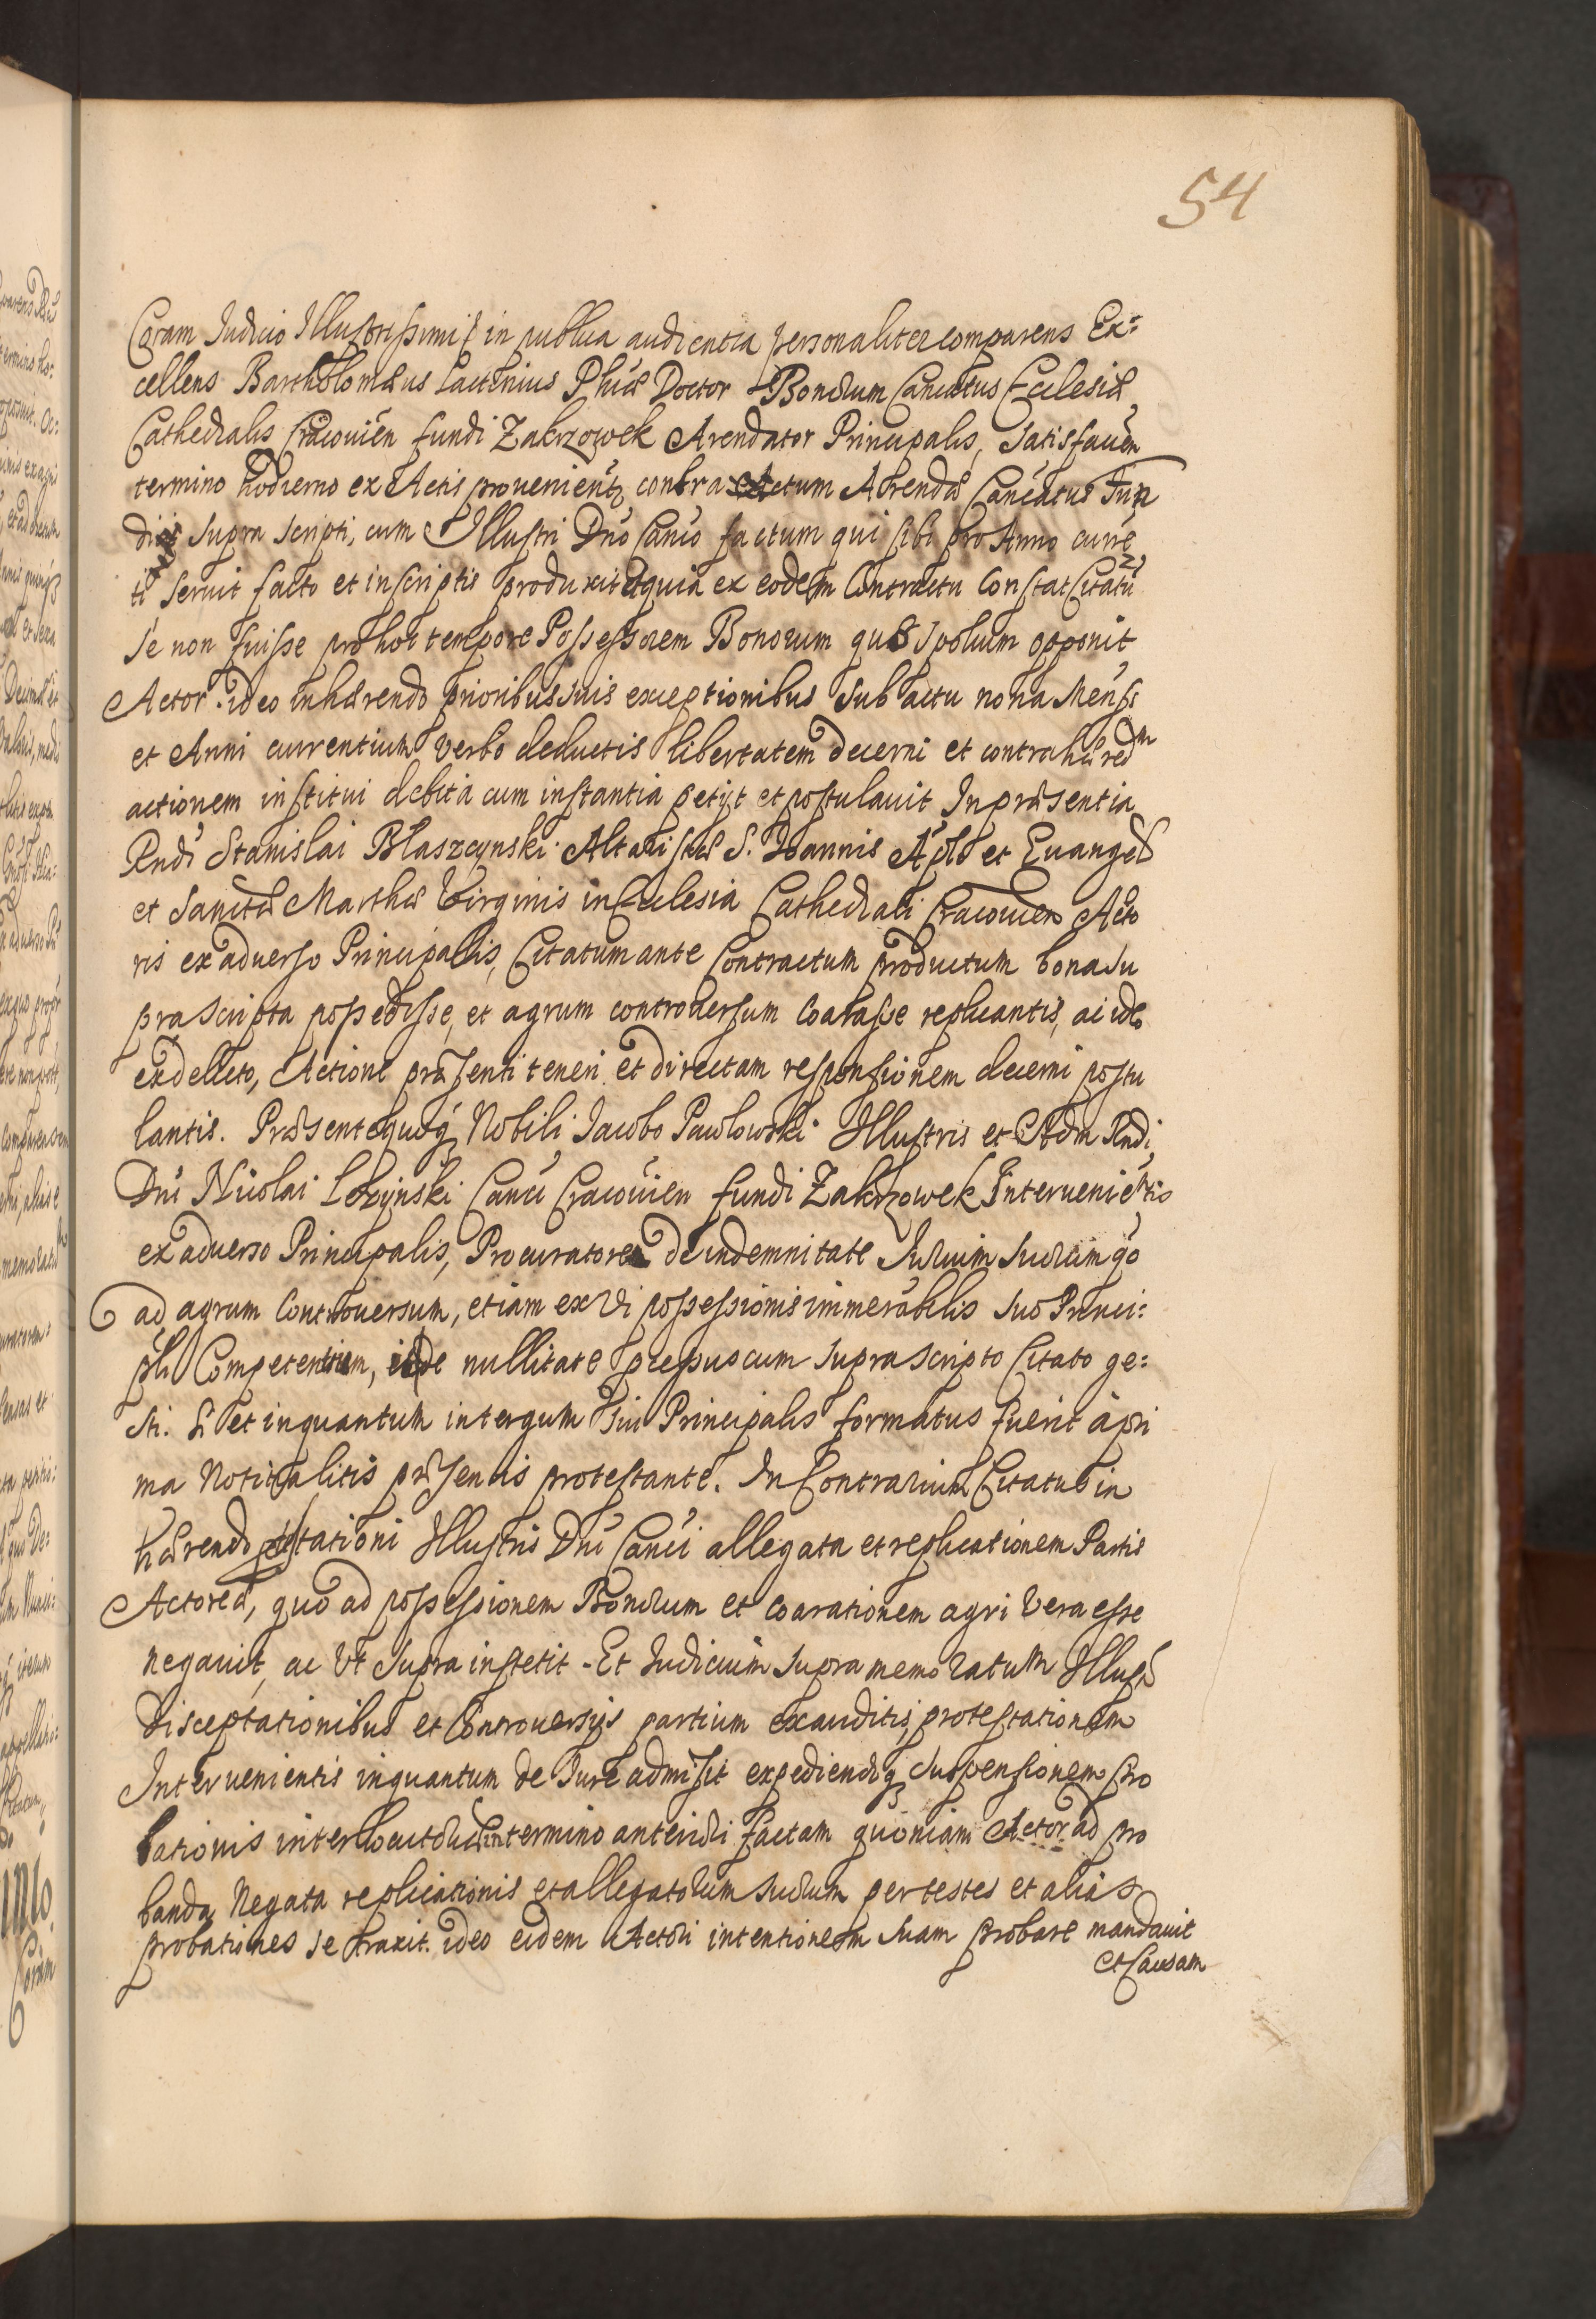 54
Coram Judicio Illustrissimi in publica audientia personaliter comparens Ex:
cellens Bartholomæus Lactinius Phiæ Doctor Bonorum CanCatus Ecclesiæ
Cathedralis Cracovien fundi Zakrzowek Arendator Principalis, Satisfacien
termino hodierno ex Actis provenient, contractum Arendæ Cancatus Fun
dii supra scripti, cum Illustri Dno Canco factum qui sibi pro Anno curre
ti servit facto et in scriptis produxit et quia ex eodem Contractu Constat Citatu
se non fuisse pro hoc tempore Possessorem Bonorum quo Spolium opponit
Actor. ideo inhærendo prioribus suis exceptionibus sub actu nona Mensis
et Anni currentium verbo deductis libertatem decerni et contra hæredm
actionem institui debita cum instantia petijt et postulavit In præsentia
Rndi Stanislai Blaszcynski Altaristæ S. Joannis Aplo et Euangel
et Sanctæ Marthæ Virginis in Ecclesia Cathedrali Cracovien Acto
ris ex adverso Principalis, Citatum ante Contractum productum bona su
pra scripta possedisse, et agrum controversum Coarasse replicantis, ac ideo
ex delicto, Actione præsenti teneri et directam responsionem decerni postu
lantis. Præsente quoq Nobili Jacobo Pawlowski Illustris et Adm Rndi
Dni Nicolai Lozynski Canci Cracovien fundi Zakrzowek Intervenientis
ex adverso Principalis, Procuratore de indemnitate Jurium Suorum qo
ad agrum Controversum, etiam ex vi possessionis immerabilis suo Princi:
pli Competentium, et de nullitate processus cum supra scripto Citato ge:
sti. et inquantum in tergum sui Principalis formatus fuerit à pri
ma Notitia litis præsentis protestante. In Contrarium Citatus in
hærendo Illustris Dni Canci allegata et replicationem Partis
Actoreæ, quo ad possessionem Bonorum et coarationem agri vera esse
negavit, ac vt supra institit. Et Judicium supra memoratum Illus
disceptationibus et Controversijs partium exauditis, protestationem
Intervenientis inquantum de Jure admisit expediendoq Suspensionem Pro
bationis interlocutoriæ in termino anteriori factam quoniam Actor ad pro
banda Negata replicationis et allegatorum suorum per testes et alias
probationes se traxit. ideo eidem Actori intentionem suam probare mandavit
et Causam